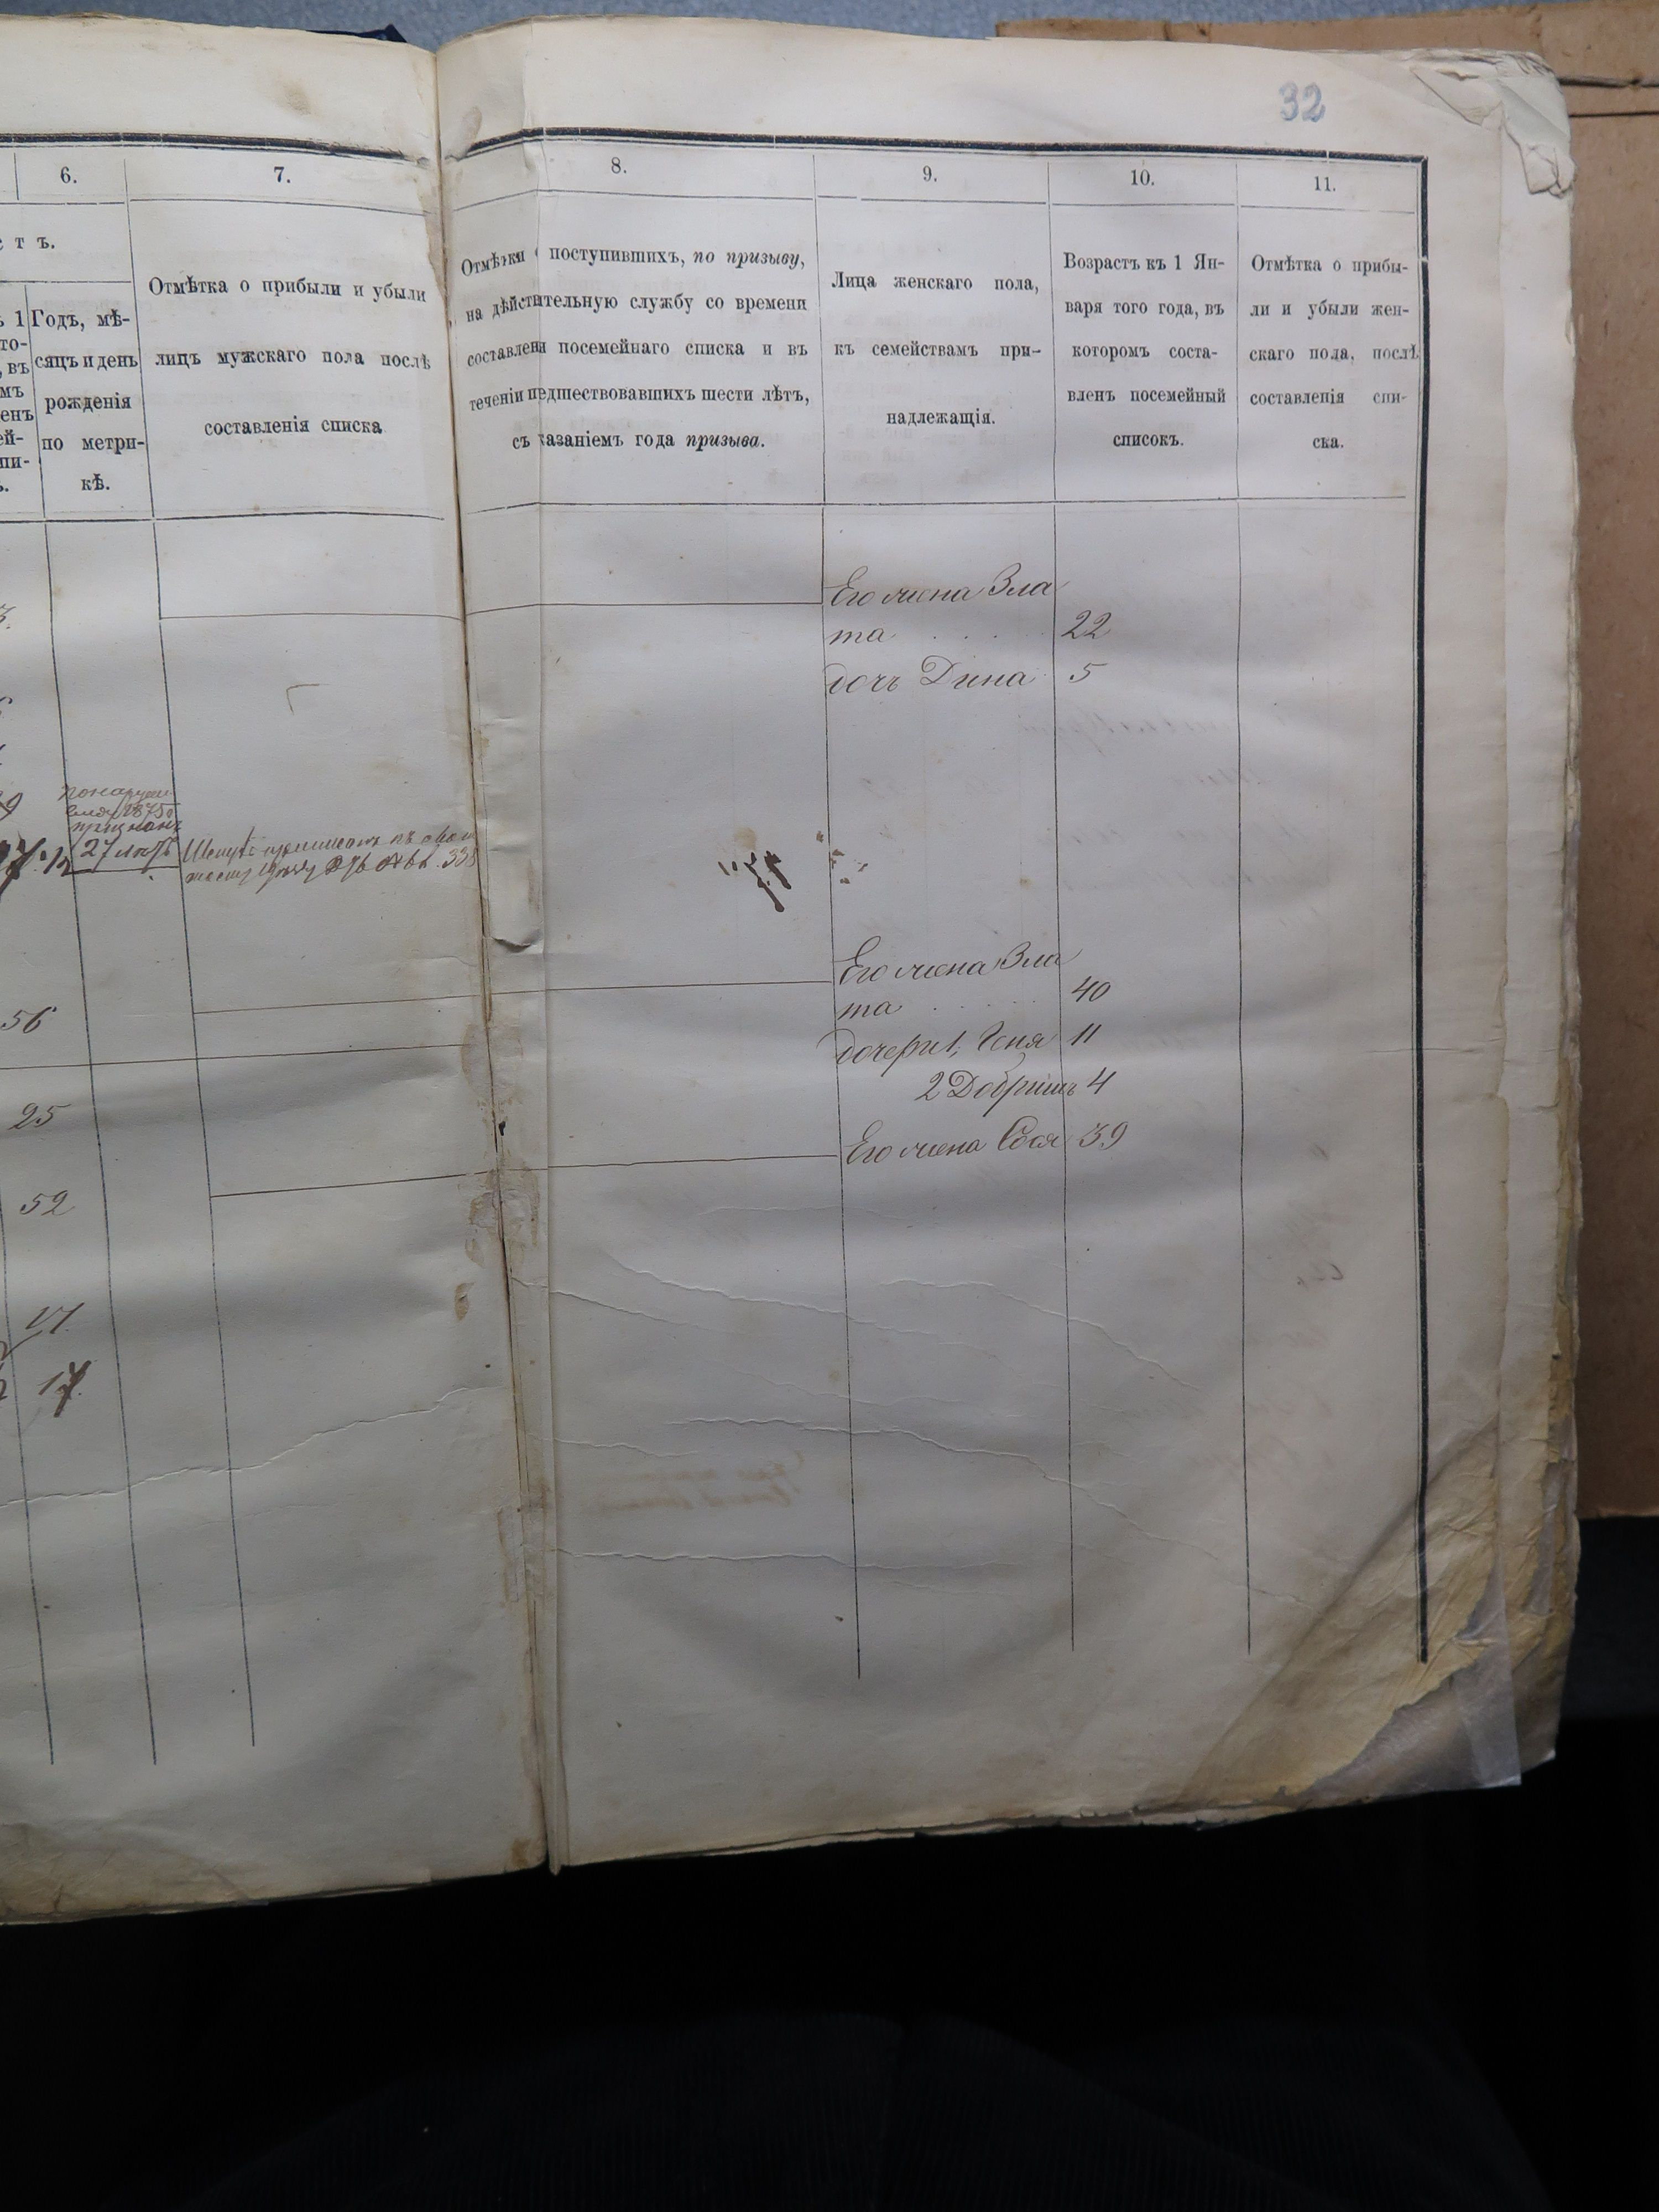 32
6.
7.
8.
9.
10.
11.
с т ъ.
Годъ, мѣ-
сяцъ и день
рожденія
по метри-
кѣ.
Отмѣтка о прибыли и убыли
лицъ мужскаго пола послѣ
составленія списка
Отмѣтки поступившихъ, по призыву,
на дѣйствительную службу со времени
составленія посемейнаго списка и въ
теченіи педшествовавшихъ шести лѣтъ,
съ казаніемъ года призыва.
Лица женскаго пола,
къ семействамъ при-
надлежащія.
Возрастъ къ 1 Ян-
варя того года, въ
которомъ соста-
вленъ посемейный
списокъ.
Отмѣтка о прибы-
ли и убыли жен-
скаго пола, послѣ
составленія спи-
ска.
Его жена Зла
та 22
дочь Дина 5
признанъ
27 лѣтъ
Его жена Зла
та 40
56
дочери 1, Геня 11
2 Добришъ 4
25
Его жена Сося 39
52
17.
17.